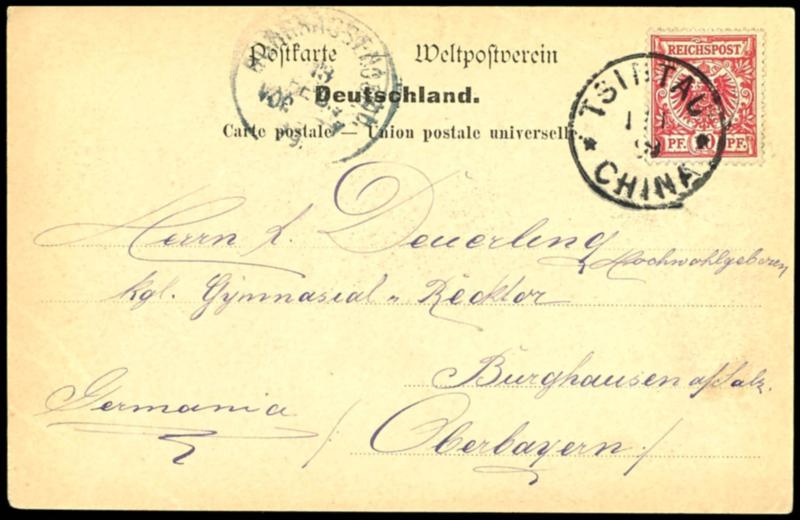 Postkarte Weltpostverein
Deutschland.
Carte postale — Union postale universelle
REICHSPOST
PF. 10 PF.
TSINTAU
CHINA
Herrn L. Deuerling
Hochwohlgeboren
kgl. Gymnasial - Recktor
Burghausen a/Salz.
Germania / Oberbayern /